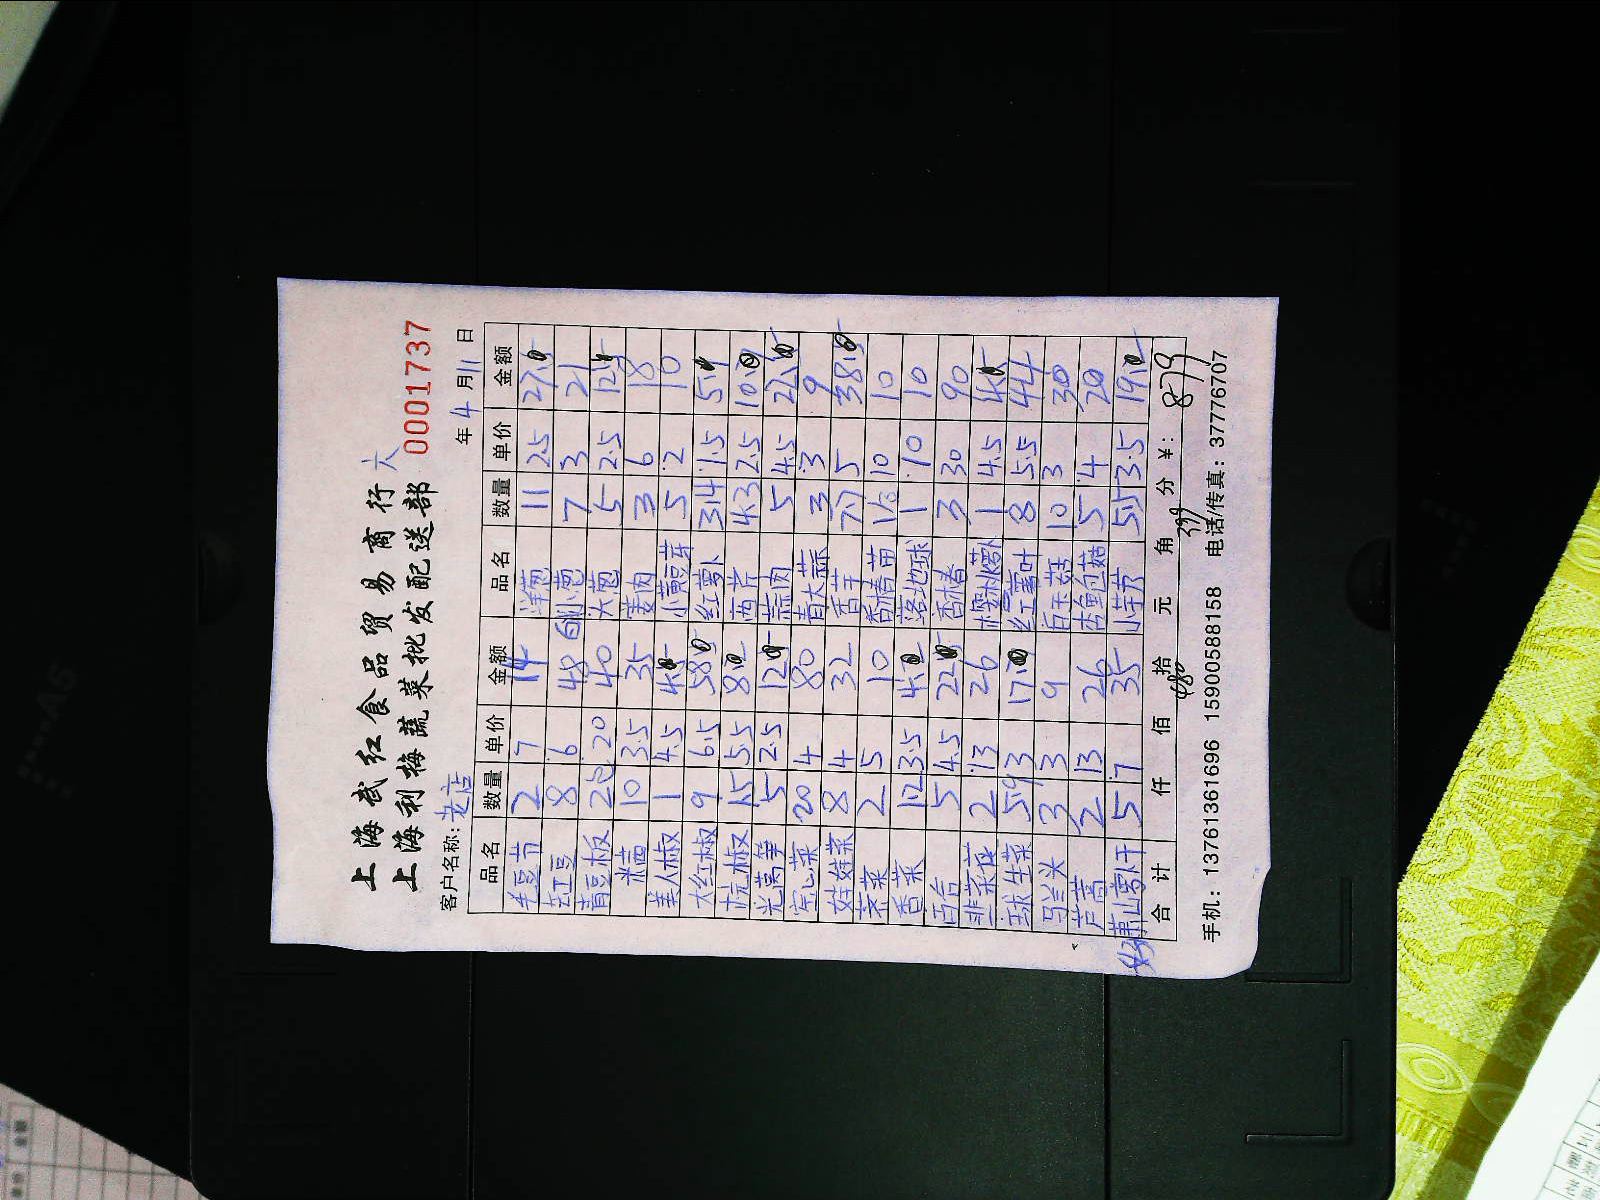 上海武红食品贸易商行 六
上海利梅蔬菜批发配送部 0001737
客户名称: 老店 年 4 月 11 日
品名 数量 单价 金额 品名 数量 单价 金额
毛豆节 2 7 14 洋葱 11 2.5 27.5
豇豆 8 6 48 小葱 7 3 21
青豆板 2 20 40 大葱 5 2.5 12.5
米苋 10 3.5 35 姜肉 3 6 18
美人椒 1 4.5 4.5 小黄豆芽 5 2 10
大红椒 9 6.5 58 红萝卜 3.4 1.5 5
杭椒 1.5 5.5 8 西芹 4.3 2.5 10
光莴笋 5 2.5 12 蒜肉 5 4.5 22.5
宝山菜 20 4 80 青大蒜 3 3 9
娃娃菜 8 4 32 香芋 7.7 5 38.5
茶菜 2 5 10 香椿苗 1 10 10
香菜 1.2 3.5 4.2 落地球 1 10 10
西台 5 4.5 22.5 香椿 3 30 90
韭菜芽 2 13 26 樱桃萝卜 1 4.5 4.5
球生菜 5.9 3 17 红薯叶 8 5.5 44
马兰头 3 3 9 白玉菇 10 3 30
芦蒿 2 13 26 杏鲍菇 5 4 20
萧山萝卜干 5 7 35 小芋艿 5.5 3.5 19.2
合计 仟 佰 拾 元 角 分 ¥: 879
480 399
手机: 13761361696 15900588158 电话/传真: 37776707